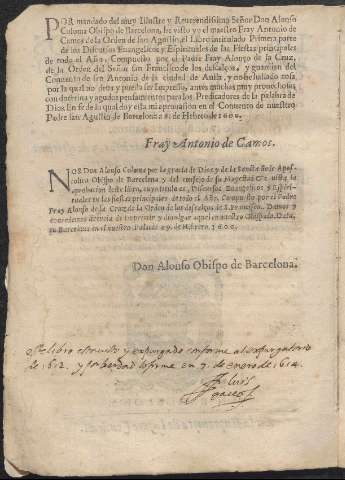 POR mandado del muy Illustre y Reuerendissimo Señor Don Alonso
Coloma Obispo de Barcelona, he visto yo el maestro Fray Antonio de
Camos de la Orden de san Augustin, el Libro intitulado Primera parte
de los Discursos Euangelicos y Espirituales de las fiestas principales
de todo el Año, Compuesto por el Padre Fray Alonso de la Cruz,
de la Orden del Señor san Francisco de los descalços, y guardian del
Conuento de san Antonio de la ciudad de Auila, y no he hallado cosa
por la qual no deua y pueda ser impresso, antes muchas muy prouechosas
con doctrina y agudos pensamientos para los Predicadores de la palabra de
Dios En fe de lo qual doy esta mi aprouacion en el Conuento de nuestro
Padre san Agustin de Barcelona à 8. de Hebrero de 1600.
Fray Antonio de Camos.
NOS Don Alonso Coloma por la gracia de Dios y de la Sancta Sede Apos-
tolica Obispo de Barcelona y del consejo de su Magestad &c. vista la
aprobacion deste libro, cuyo titulo es, Discursos Euangelicos y Espiri-
tuales en las fiestas principales de todo el Año, Compuesto por el Padre
Fray Alonso de la Cruz de la Orden de los descalços de S. Francisco. Damos y
concedemos licencia de imprimir y diuulgar aquel en nuestro Obispado. Data
en Barcelona en el nuestro Palacio à 9. de Hebrero, 1600.
Don Alonso Obispo de Barcelona.
Este libro esta visto y expurgado conforme al expurgatorio
de 1612. y por verdad lo firme en 7. de enero de 1614.
Fr Luis